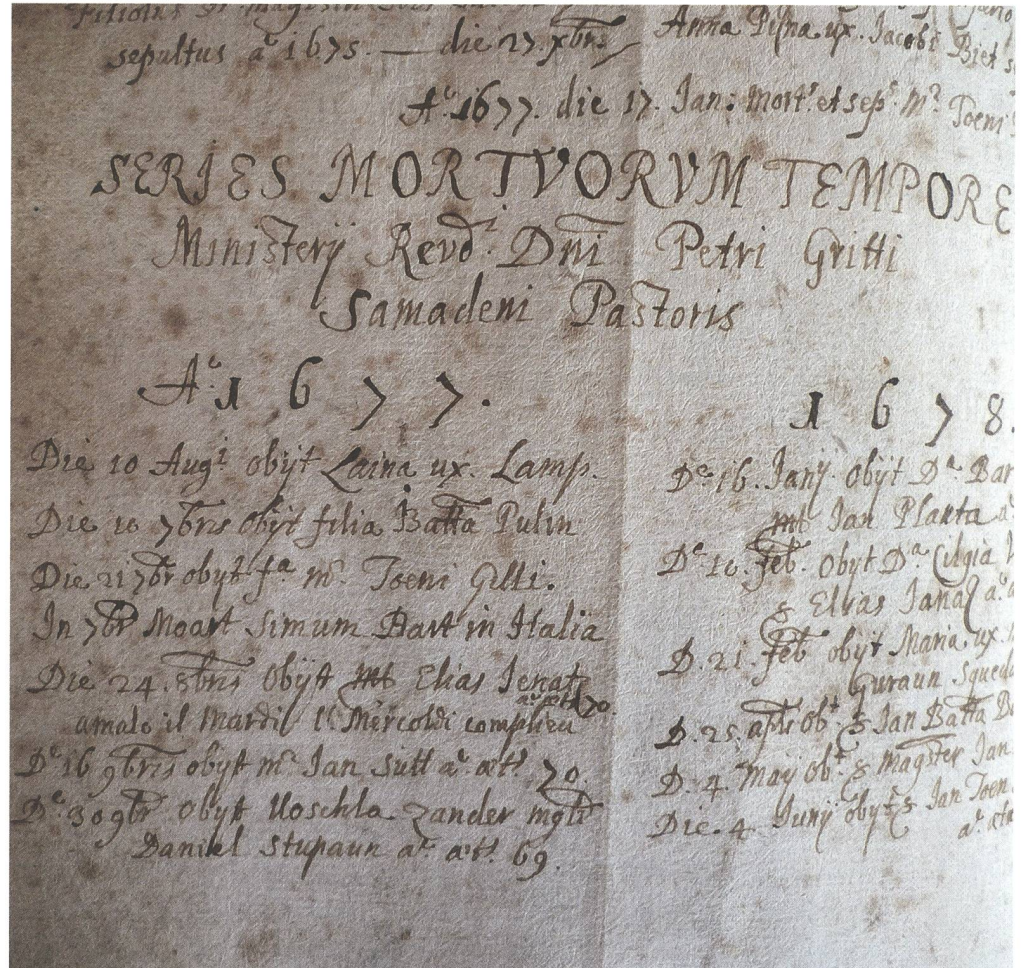 sepultus aº 1675. — die 27. xbris
Anna Pisna ux. Jacobi Biet
Aº 1677. die 17. Jan: mortˢ et sepˢ mʳ Toeni
SERIES MORTVORVM TEMPORE
Ministerij Revdⁱ Dni Petri Gritti
Samadeni Pastoris
Aº 1677.
Die 10 Augⁱ obijt Laina ux. Lamp.
Die 10 7bris obijt filia Batta Pulin
Die 21 7br obyt fᵃ mʳ Toeni Gilli.
In 7br Moart Simum Bart in Italia
Die 24. 8bris obijt Elias Jenatz
amalo il Mardi l'Mercoldi complieu
Dᵉ 16 9bris obyt mʳ Jan Sutt aº ætˢ 70.
Dᵉ 30 9br obyt Uoschla Zander
Daniel Stupaun aº ætˢ 69.
1678.
Dᵉ 16. Janʸ obijt Dᵃ Bar
Jan Planta aº
Dᵉ 10. feb. obyt Dᵃ Cilgia
Elias Janaz aº
D. 21. feb obijt Maria ux
Guraun
D. 25. apris obᵗ Jan Batta
D. 4. May obᵗ magster Jan
Die. 4 Junij obyt Jan Toen
aº æta